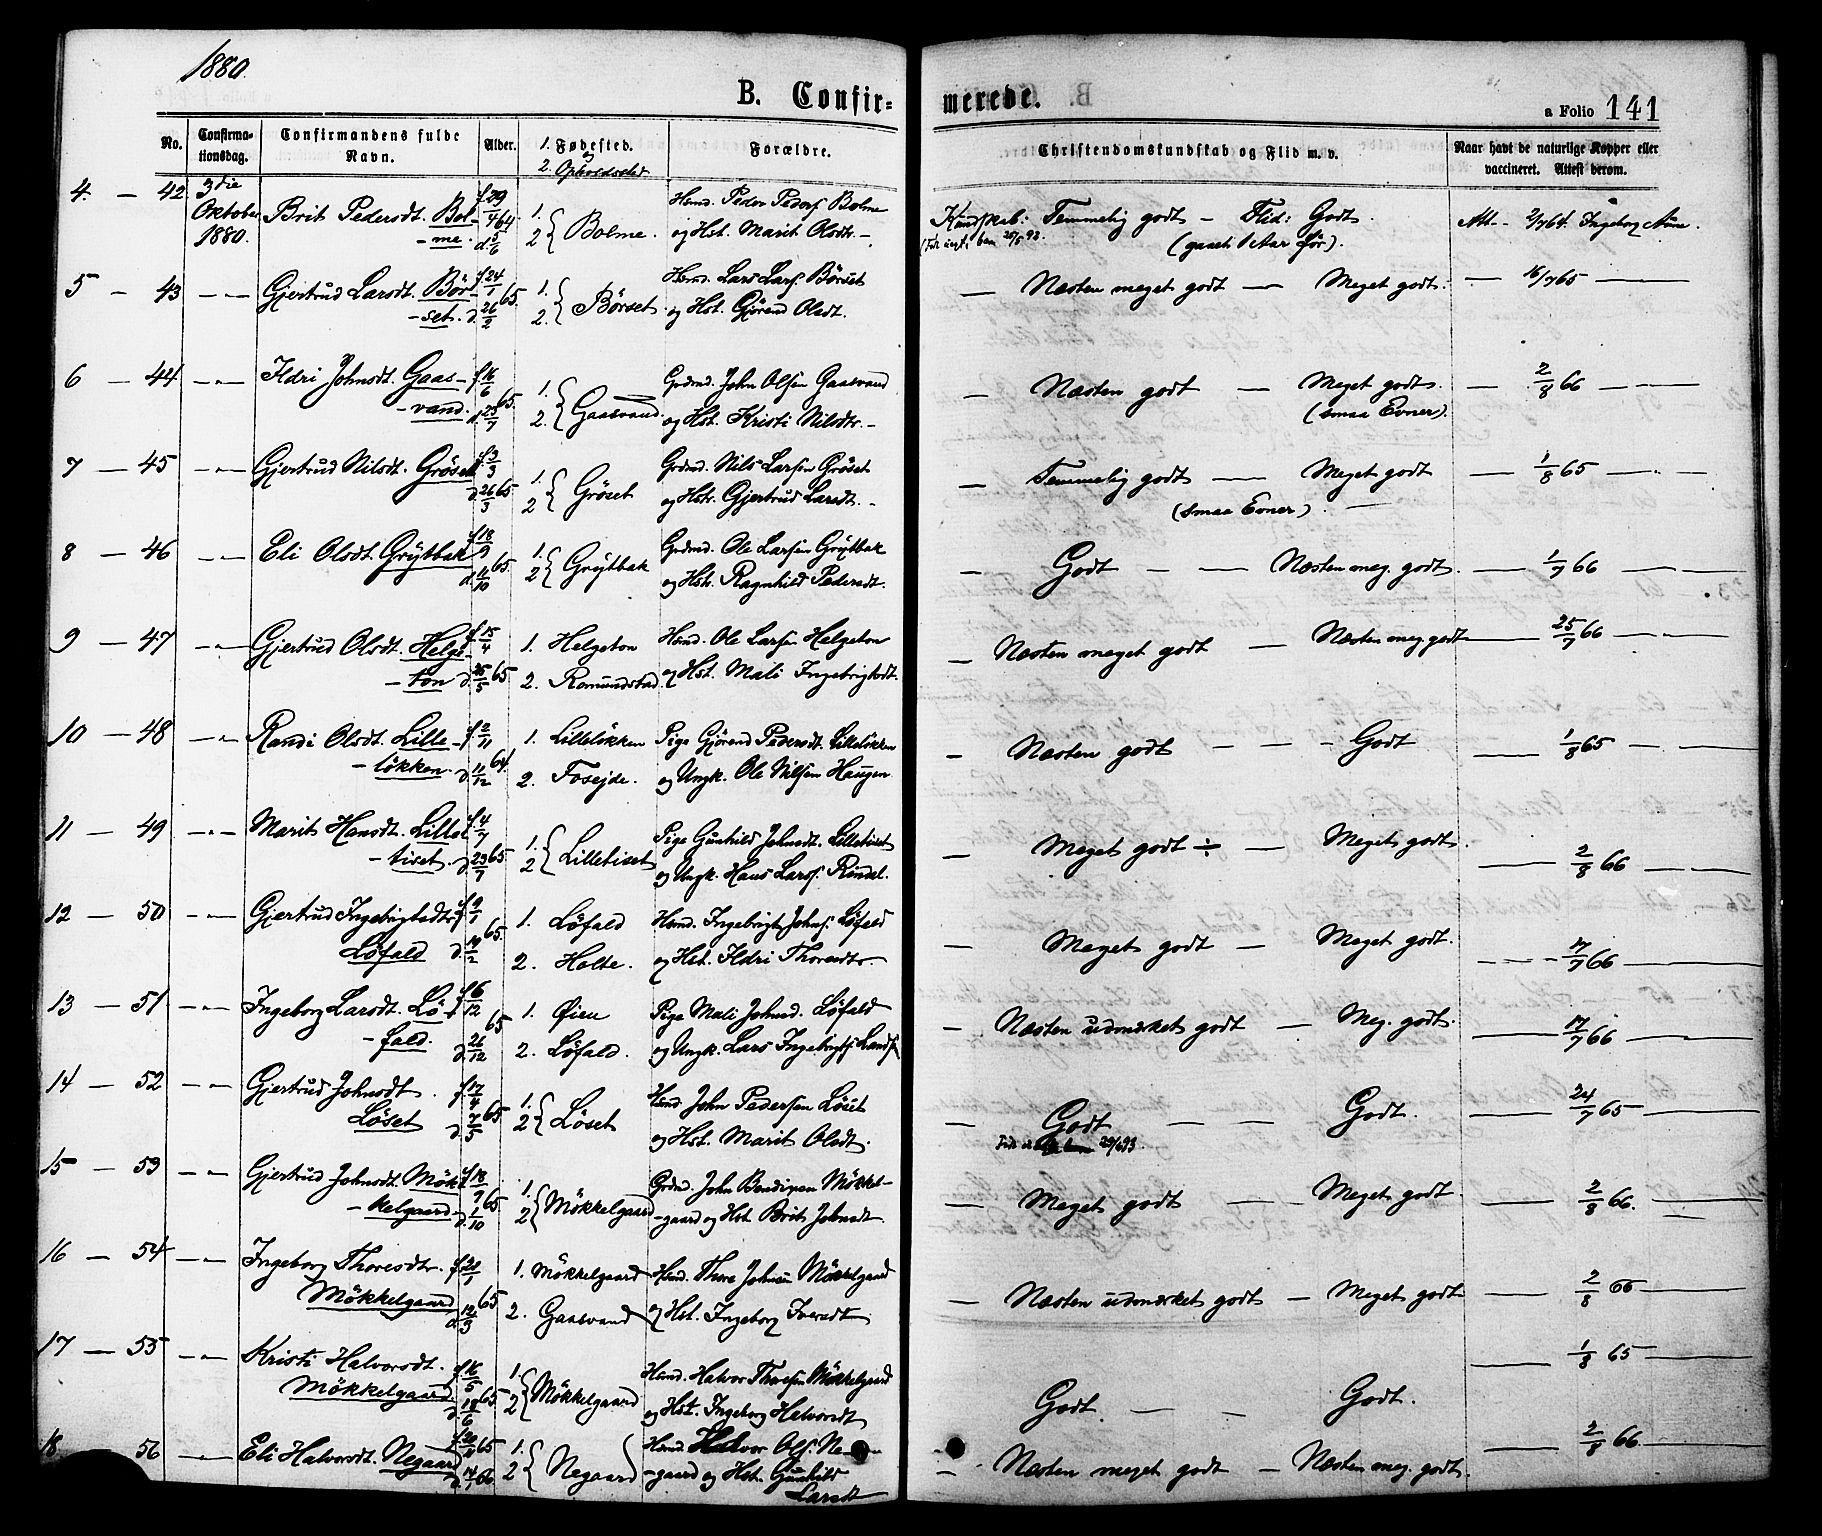 1880.
B. Confir-
merede.
a Folio 141
No.
Confirma-
tionsdag.
Confirmandens fulde
Navn.
Alder.
1. Fødested.
og
2. Opholdssted
Forældre.
Christendomskundskab og Flid m. v.
Naar havt de naturlige Kopper eller
vaccineret. Attest derom.
4. — 42. 3die Oktober 1880. Brit Pedersdt. Bol- f. 29/4 64 1. Hmd. Peder Peders. Bolme Kundskab: Temmelig godt — Flid: Godt. Att. 2/7 64. Ingeborg
-me. d. 5/6 2 { Bolme. og Hst. Marit Olsdtr. - (gaaet 1 Aar før).
5 — 43 — " — Gjertrud Larsdt. Bör- f. 24/1 65. 1. Hmd. Lars Lars. Börset — Næsten meget godt — Meget godt. — 16/7 65 —
-set. d. 26/2 2. { Börset. og Hst. Gjörend Olsdt.
6 — 44 — " — Ildri Johnsdt. Gaas- f. 16/6 65. 1. Grdmd. John Olsen Gaasvand — Næsten godt — Meget godt. — 2/8 66 —
-vand. d. 23/7 2. { Gaasvand. og Hst. Kristi Nilsdtr. - (smaa Evner).
7 — 45 — " — Gjertrud Nilsdt. Gröset f. 3/3 65 1. Grdmd. Nils Larsen Gröset — Temmelig godt — Meget godt — 1/8 65 —
d. 26/3 2 { Gröset og Hstr. Gjertrud Larsdt. - (smaa Evner). —
8 — 46 — " — Eli Olsdt. Gröjtbak f. 18/9 65 1. Grdmd. Ole Larsen Gröjtbak — Godt — — Næsten meg. godt. — 1/7 66 —
d. 11/10 2 { Gröjtbak og Hstr. Ragnhild Pedersdt.
9 — 47 — " — Gjertrud Olsdt. Helge- f. 15/4 65 1. Helgeton Hmd. Ole Larsen Helgeton — Næsten meget godt — Næsten meg. godt — 25/7 66 —
-ton d. 25/5 2. Romundstad og Hst. Mali Ingebrigtsdt.
10 — 48 — " — Randi Olsdt. Lille- f. 2/11 64. 1. Lillelökken Pige Gjörend Pedersdt. Lillelökken — Næsten godt — — Godt — 1/8 65 —
-lökken. d. 11/12 2. Fosejde. og Ungk. Ole Nilsen Haugen.
11 — 49 — " — Marit Hansdt. Lille- f. 4/7 65 1. Pige Gunhild Johnsdt. Lilletiset — Meget godt ÷ — Meget godt. — 2/8 66 —
-tiset. d. 23/7 2 { Lilletiset og Ungk. Hans Larss. Rindal.
12 — 50 — " — Gjertrud Ingebrigtsdtr. f. 9/1 65. 1. Löfald Hmd. Ingebrigt Johns. Löfald — Meget godt — Meget godt. — 17/7 66 —
Löfald d. 19/2 2. Holte. og Hst. Ildri Thoresdtr
13 — 51 — " — Ingeborg Larsdt. Lö- f. 6/12 65 1. Øien Pige Mali Johnsd. Löfald — Næsten udmærket godt — Meg. godt. — 17/7 66 —
-fald. d. 26/12 2. Löfald. og Ungk. Lars Ingebrigts.
14 — 52 — " — Gjertrud Johnsdt. f. 17/4 65 1. Hmd John Pedersen Löset — Godt — — Godt. — 24/7 65 —
Löset d. 7/5 2 { Löset og Hst. Marit Olsdt.
15 — 53 — " — Gjertrud Johnsdt. Mök- f. 18/9 65 1. Grdmd. John Bendixen Mökkel- — Meget godt — Meget godt. — 2/8 66. —
-kelgaard. d. 1/10 2 { Mökkelgaard -gaard og Hst. Brit Johnsdt.
16 — 54 — " — Ingeborg Thoresdtr. f. 20/1 65 1. Mökkelgaard Hmd. Thore Johnsen Mökkelgaard — Næsten udmærket godt — Meget godt — 2/8 66 —
Mökkelgaard d. 12/3 2. Gaasvand og Hst. Ingeborg Iversdt
17 — 55 — " — Kristi Halvorsdt. f. 16/5 65 1. Hmd. Halvor Thoresen Mökkelgaard Godt. — — Godt. — 1/8 65 —
Mökkelgaard. d. 18/6 2 { Mökkelgaard og Hst. Ingeborg Halvorsdt
18 56 — " — Eli Halvorsdt. Negaard f. 30/11 65 1. Hmd. Halvor Ols. Ne- — Næsten meget godt — Næsten meg. godt. — 2/8 66. —
d. 14/1 66 2 { Negaard -gaard og Hst. Gunhild
Larsdt